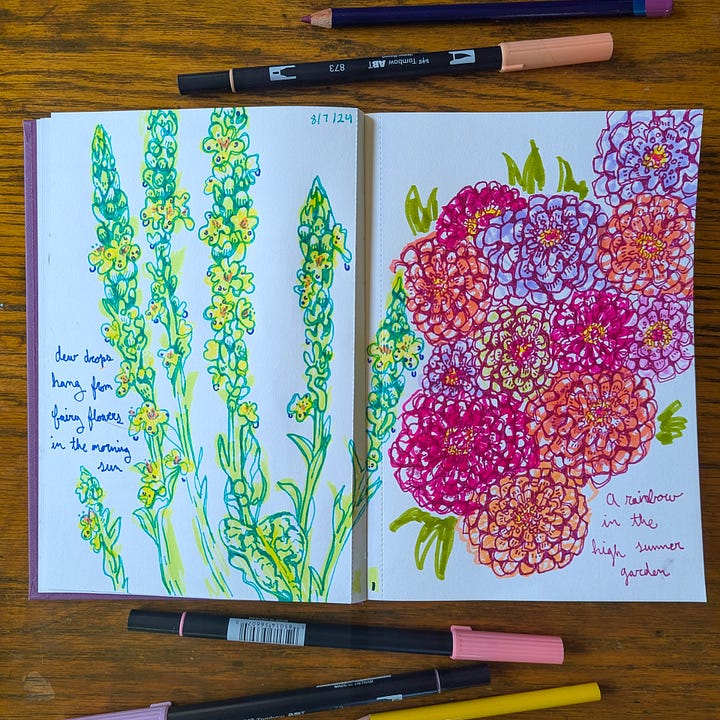 873 Tombow ABT
8/7/24
dew drops
hang from
fairy flowers
in the morning
sun
a rainbow
in the
high summer
garden
MADE IN VIETNAM
Tombow ABT